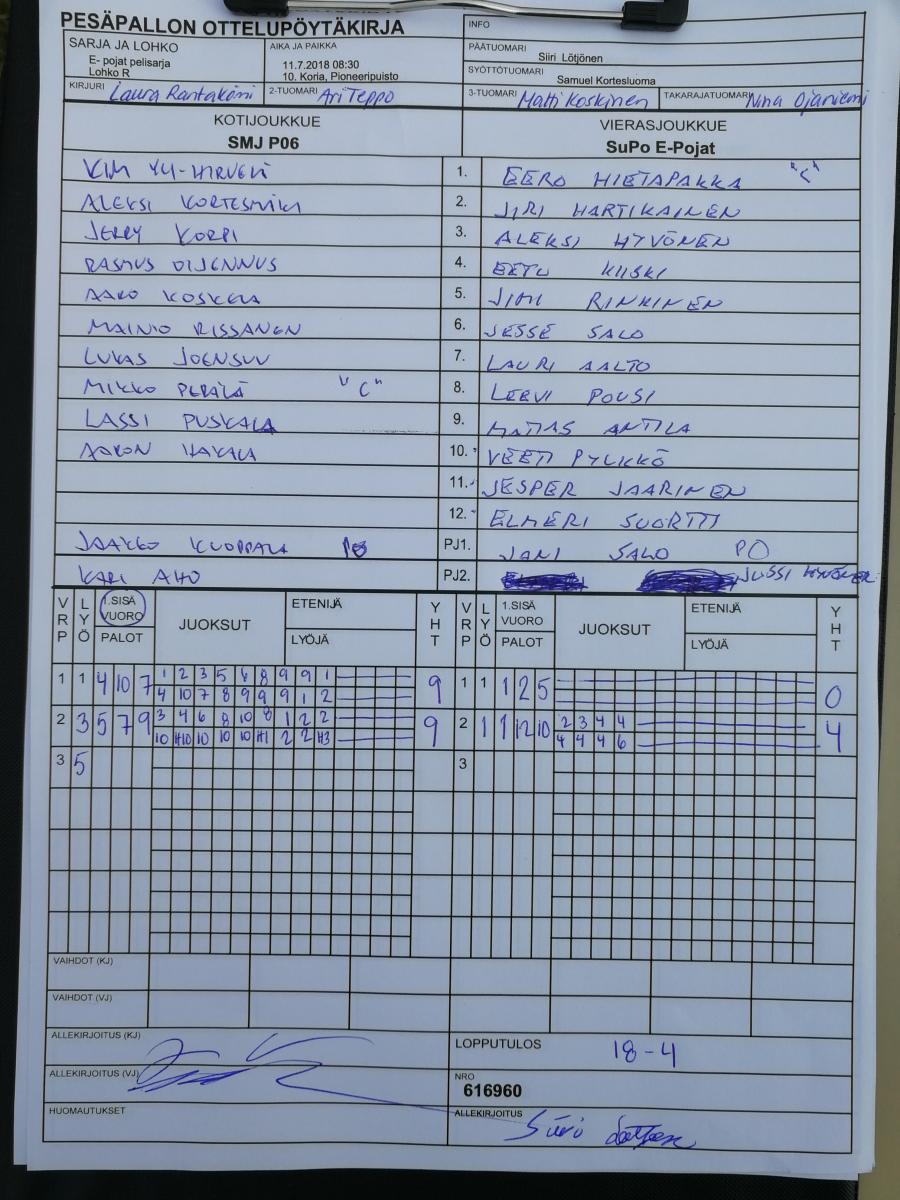 PESÄPALLON OTTELUPÖYTÄKIRJA
INFO
SARJA JA LOHKO
E- pojat pelisarja
Lohko R
AIKA JA PAIKKA
11.7.2018 08:30
10. Koria, Pioneeripuisto
PÄÄTUOMARI Siiri Lötjönen
SYÖTTÖTUOMARI Samuel Kortesluoma
KIRJURI Laura Rantakömi 2-TUOMARI Ari Teppo 3-TUOMARI Matti Koskinen TAKARAJATUOMARI Nina Ojaniemi
KOTIJOUKKUE VIERASJOUKKUE
SMJ P06 SuPo E-Pojat
KIM YLI-HIRVELÄ 1. EERO HIETAPAKKA "C"
ALEKSI 2. JIRI HARTIKAINEN
JERRY KORPI 3. ALEKSI HYVÖNEN
RASMUS OIJENNUS 4. EETU KIISKI
AARO KOSKELA 5. JIMI RINKINEN
MAINIO RISSANEN 6. JESSE SALO
LUKAS JOENSUU 7. LAURI AALTO
MIKKO PERÄLÄ "C" 8. LEEVI POUSI
LASSI PUSKALA 9. MATIAS ANTILA
AARON HAKALA 10. VEETI PYLKKÖ
11. JESPER JAARINEN
12. ELMERI SUORTTI
JAAKKO KUOPPALA PJ1. JANI SALO PO
KARI AHO PJ2. JUSSI HYVÖNEN
VRP LYÖ 1.SISÄ VUORO PALOT JUOKSUT ETENIJÄ LYÖJÄ YHT VRP LYÖ 1.SISÄ VUORO PALOT JUOKSUT ETENIJÄ LYÖJÄ YHT
1 1 4 10 7 1 2 3 5 6 8 9 9 1 9 1 1 1 2 5 0
4 10 7 8 9 9 9 1 2
2 3 5 7 9 3 4 6 8 10 8 1 2 2 9 2 1 1 12 10 2 3 4 4 4
10 H10 10 10 10 H1 2 2 H3 4 4 4 6
3 5 3
VAIHDOT (KJ)
VAIHDOT (VJ)
ALLEKIRJOITUS (KJ)
LOPPUTULOS 18-4
ALLEKIRJOITUS (VJ)
NRO
616960
HUOMAUTUKSET
ALLEKIRJOITUS Siiri